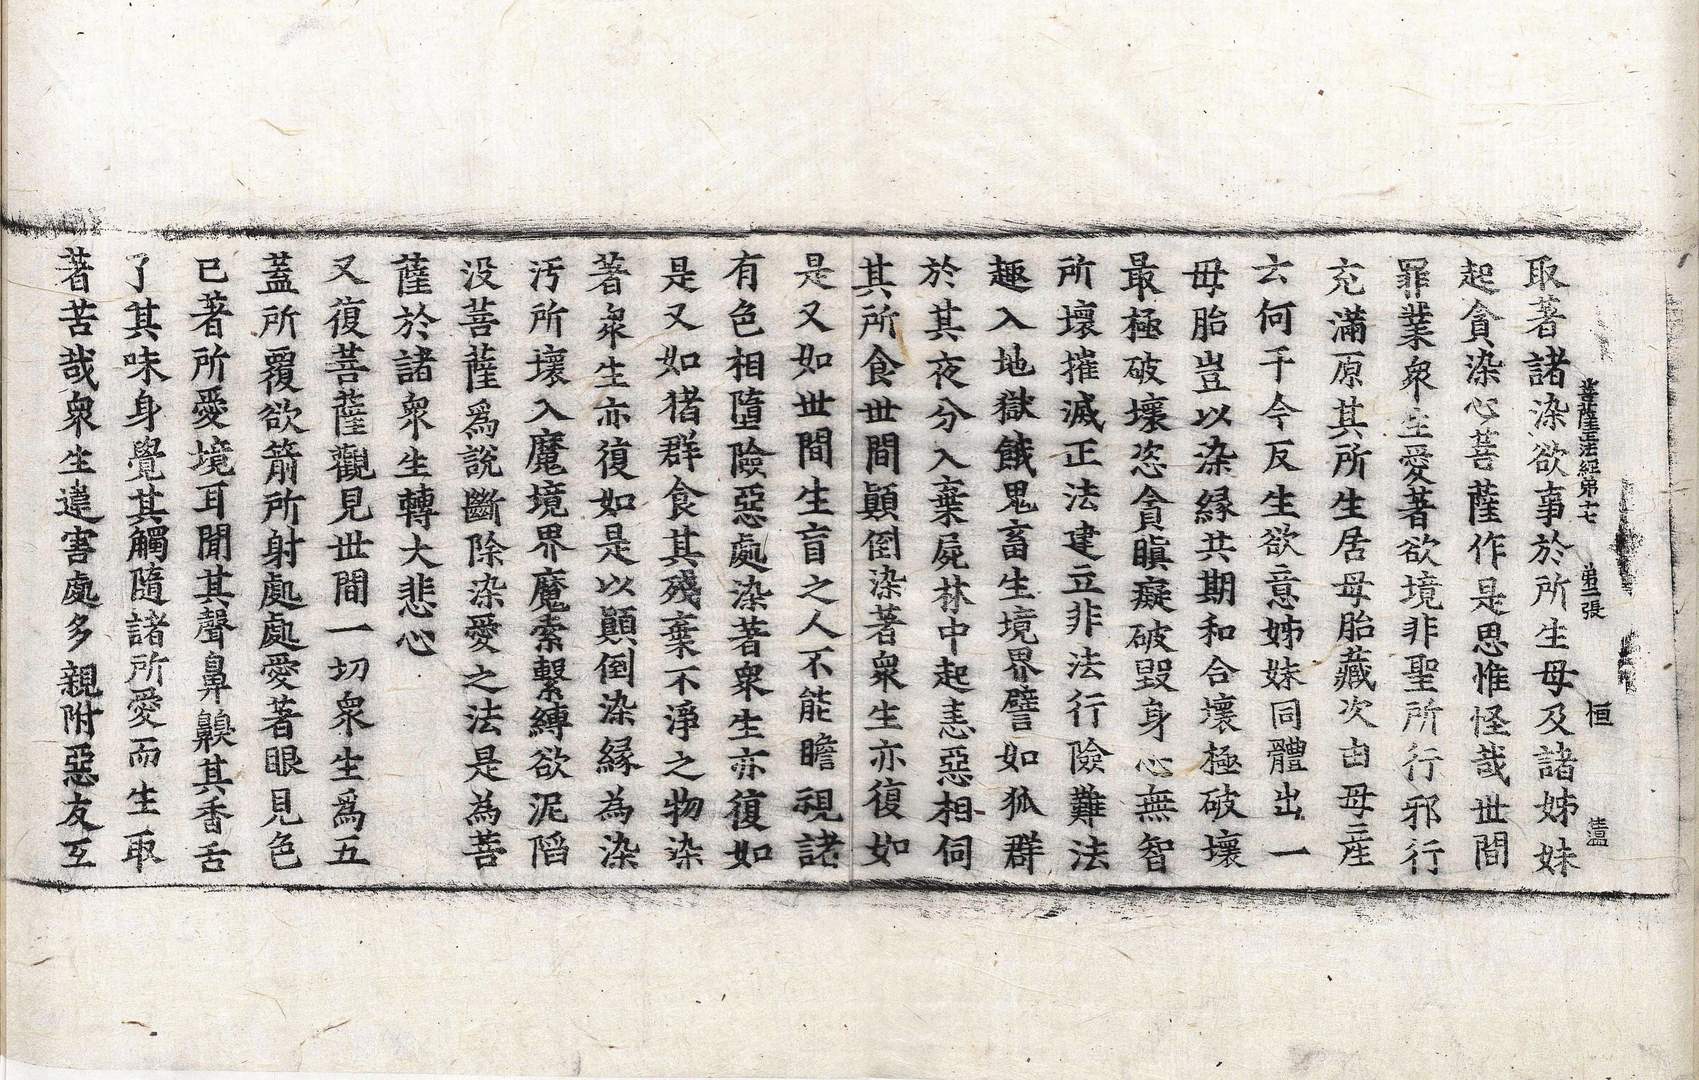 菩薩正法經第十七 第二張 恒
取著諸染欲事於所生母及諸姊妹
起貪染心菩薩作是思惟怪哉世間
罪業衆生愛著欲境非聖所行邪行
充滿原其所生居母胎藏次由母產
云何于今反生欲意姊妹同體出一
母胎豈以染緣共期和合壞極破壞
最極破壞恣貪瞋癡破毀身心無智
所壞摧滅正法建立非法行險難法
趣入地獄餓鬼畜生境界譬如狐群
於其夜分入棄屍林中起恚惡相伺
其所食世間顚倒染著衆生亦復如
是又如世間生盲之人不能瞻視諸
有色相墮險惡處染著衆生亦復如
是又如猪群食其殘棄不淨之物染
著衆生亦復如是以顚倒染緣為染
汚所壞入魔境界魔索繫縛欲泥陷
没菩薩爲說斷除染愛之法是為菩
薩於諸衆生轉大悲心
又復菩薩觀見世間一切衆生爲五
蓋所覆欲箭所射處處愛著眼見色
已著所愛境耳聞其聲鼻齅其香舌
了其味身覺其觸隨諸所愛而生取
著苦哉衆生違害處多親附惡友互